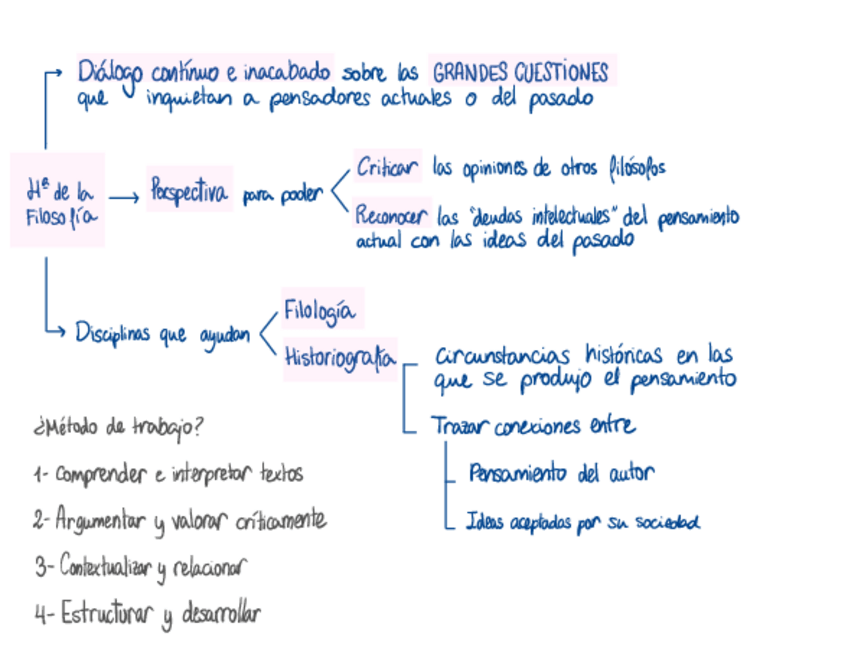 Diálogo contínuo e inacabado sobre las GRANDES CUESTIONES
que inquietan a pensadores actuales o del pasado
Hª de la
Filosofía
Perspectiva para poder
Criticar las opiniones de otros filósofos
Reconocer las "deudas intelectuales" del pensamiento
actual con las ideas del pasado
Disciplinas que ayudan
Filología
Historiografía
Circunstancias históricas en las
que se produjo el pensamiento
Trazar conexiones entre
Pensamiento del autor
Ideas aceptadas por su sociedad
¿Método de trabajo?
1- Comprender e interpretar textos
2- Argumentar y valorar críticamente
3- Contextualizar y relacionar
4- Estructurar y desarrollar